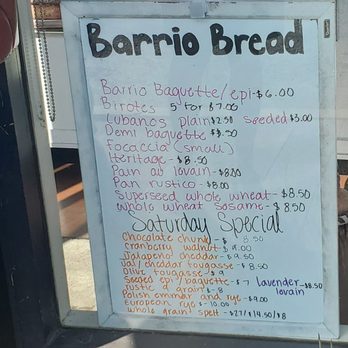 Barrio Bread
Barrio Baguette/epi-$6.00
Birotes 5 for $7.00
Cubanos plain $2.50 seeded $3.00
Demi baguette $3.50
focaccia (small)
Heritage - $8.50
Pain au lovain - $8.00
Pan rustico - $8.00
Superseed whole wheat - $8.50
whole wheat sesame - $8.50
Saturday Special
Chocolate chunk - $8.50
Cranberry walnut - $9.00
Jalapeño cheddar - $9.50
Jal/cheddar fougasse - $8.50
Olive fougasse - $9
Seeded epi/baguette - $7
rustic 9 grain - 8
lavender lovain - $8.50
Polish emmar and rye - $9.00
European rye - 10.00
Whole grain spelt - $27/$14.50/$8